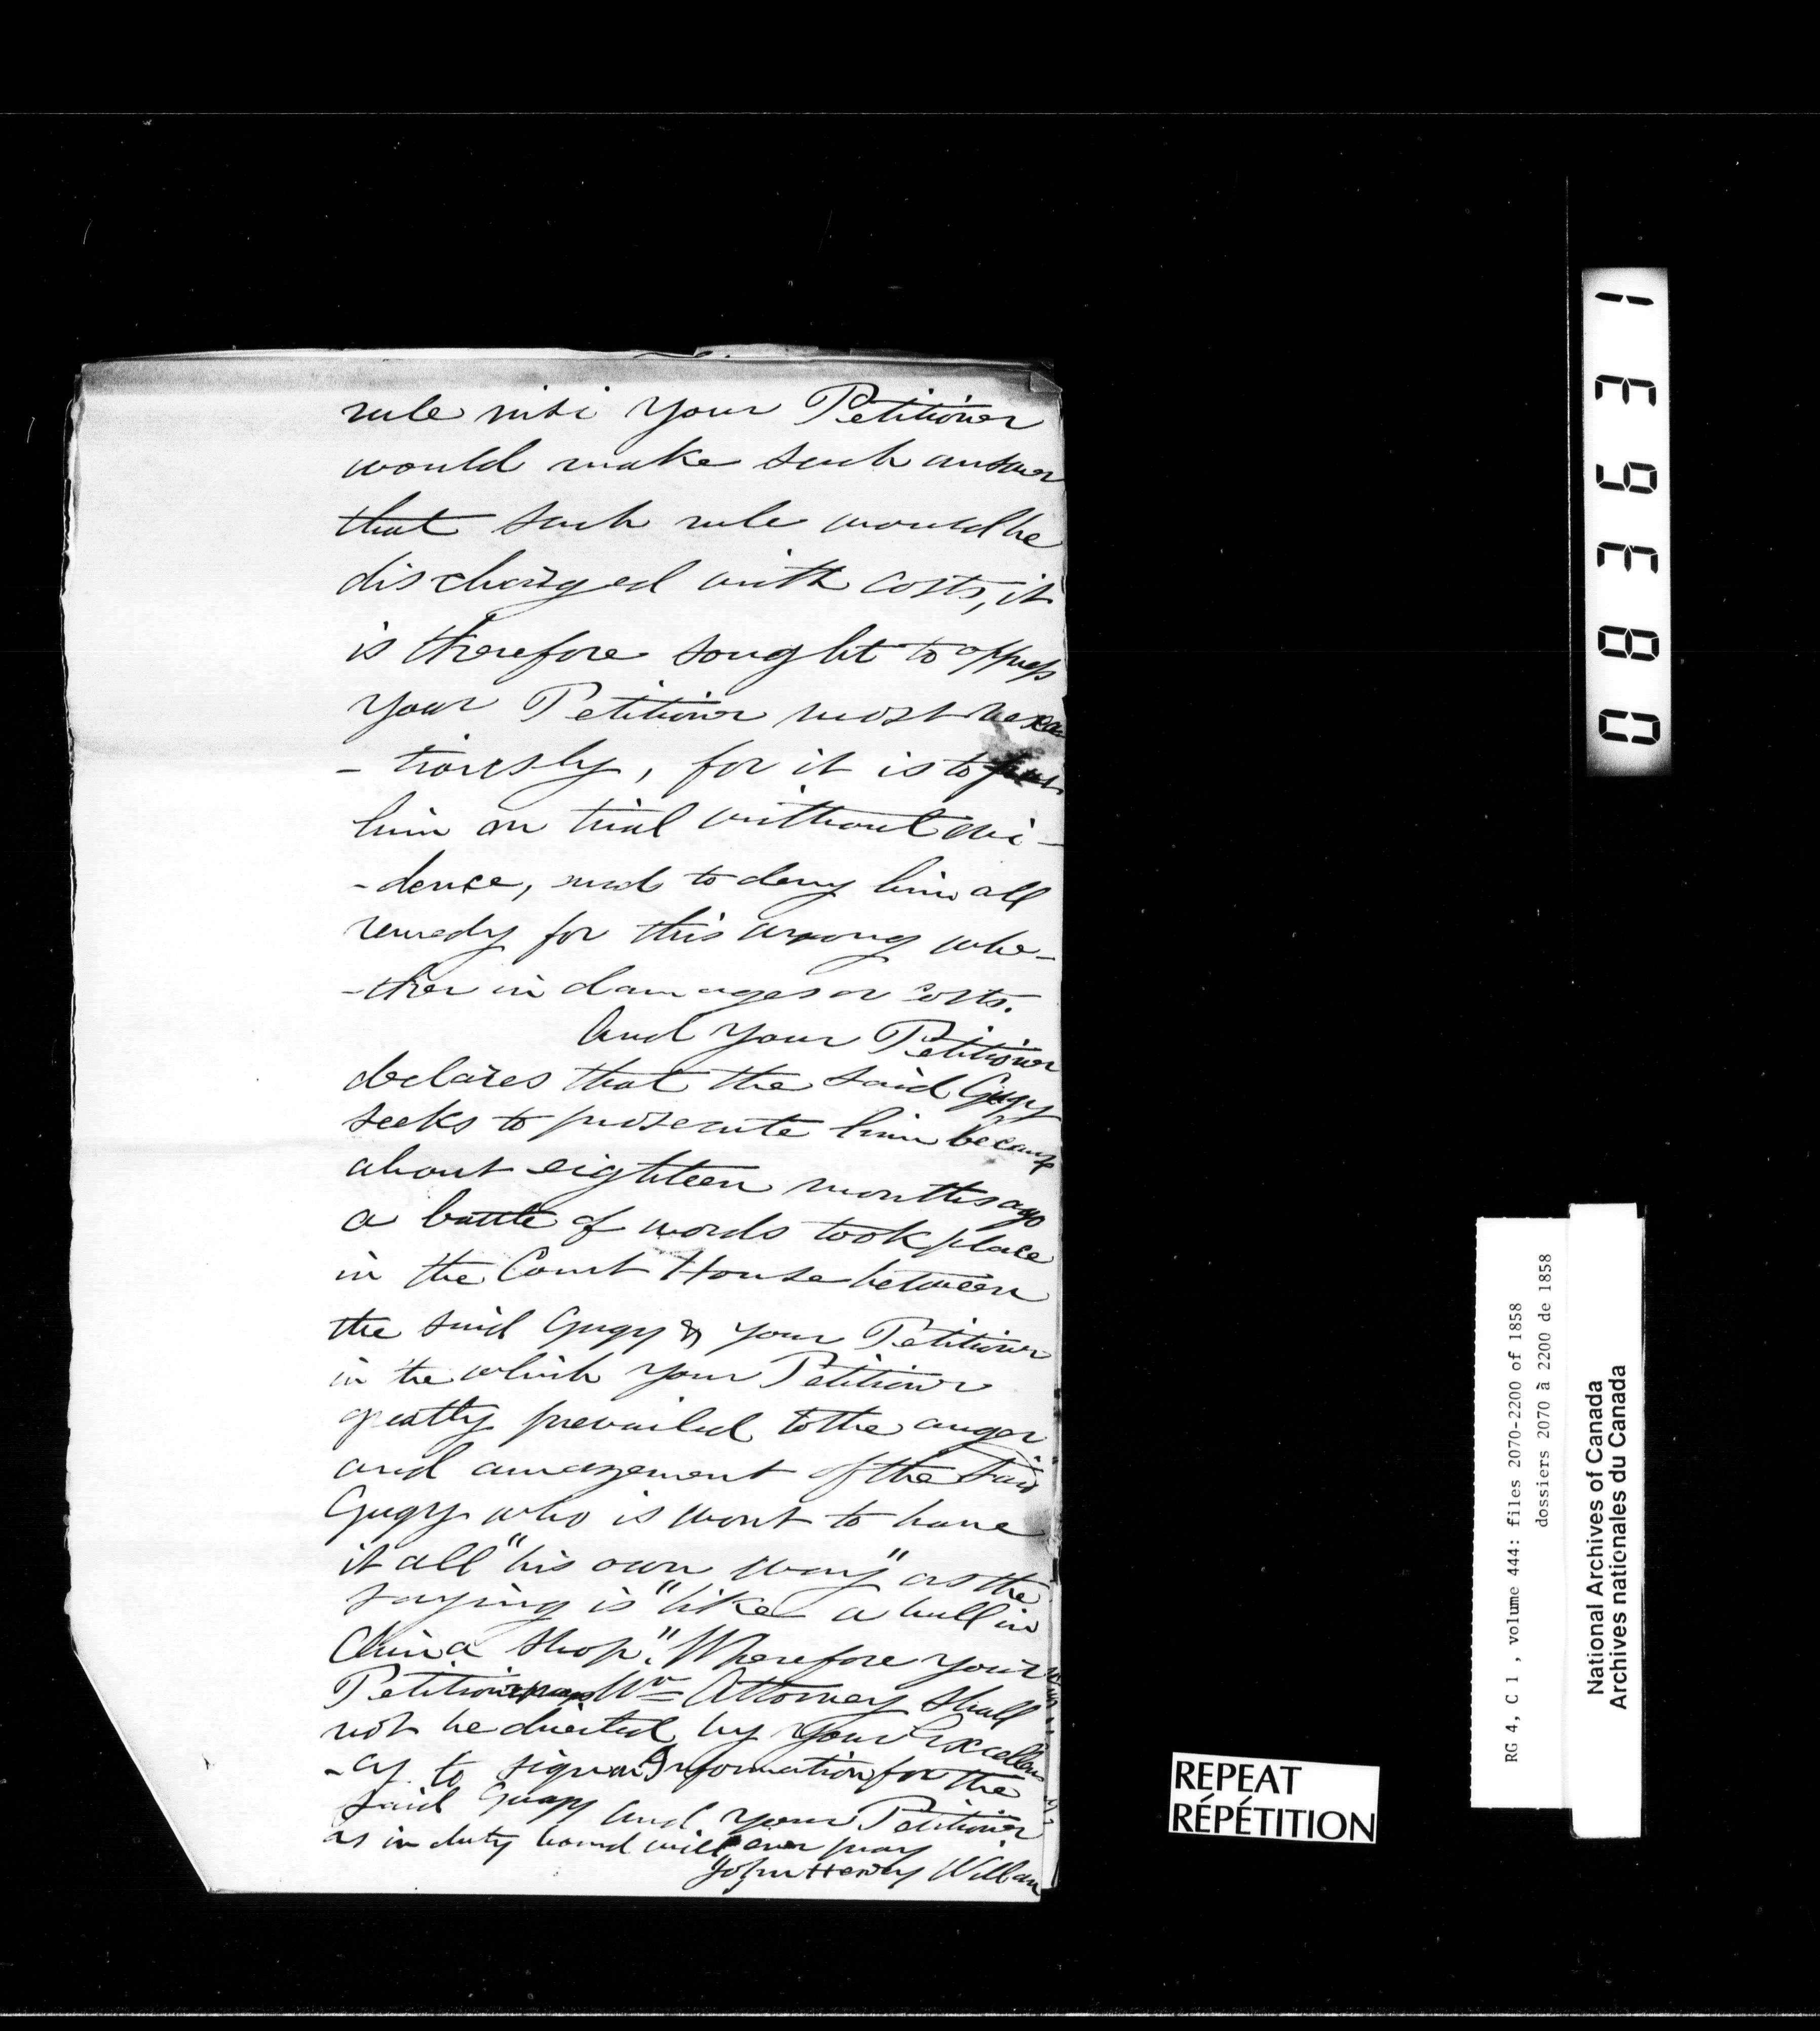 rule nisi your Petitioner
would make such answer
that such rule would be
discharged with costs, it
is therefore sought to oppress
your Petitioner most vexa
- tiously, for it is to put
him on trial without evi-
-dence, and to deny him all
remedy for this wrong whe-
-ther in damages or costs.
And your Petitioner
declares that the said Gugy
seeks to prosecute him because
about eighteen months ago
a battle of words took place
in the Court House between
the said Gugy & your Petitioner
in the which your Petitioner
greatly prevailed to the anger
and amazement of the said
Gugy who is wont to have
it all "his own way" as the
saying is "like a bull in
China shop". Wherefore your
Petitioner Mr Attorney shall
not be directed by your Excellen
-cy to sign an Information for the
said Gugy and your Petitioner
as in duty bound will ever pray
John Henry Willan
083631
RG 4, C 1 , volume 444: files 2070-2200 of 1858
dossiers 2070 à 2200 de 1858
National Archives of Canada
Archives nationales du Canada
REPEAT
RÉPÉTITION